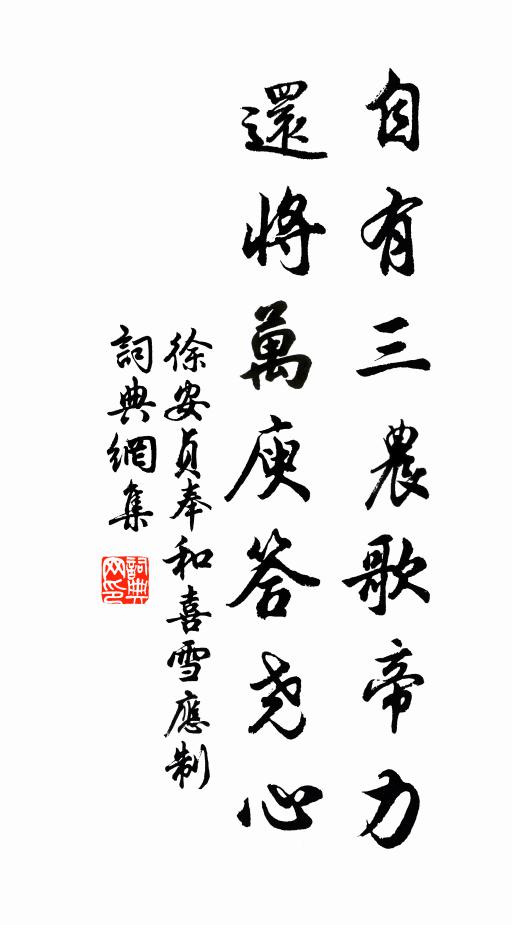 自有三農歌帝力
還將萬庾答尧心
徐安貞奉和喜雪應制
詞典網集
詞典網印